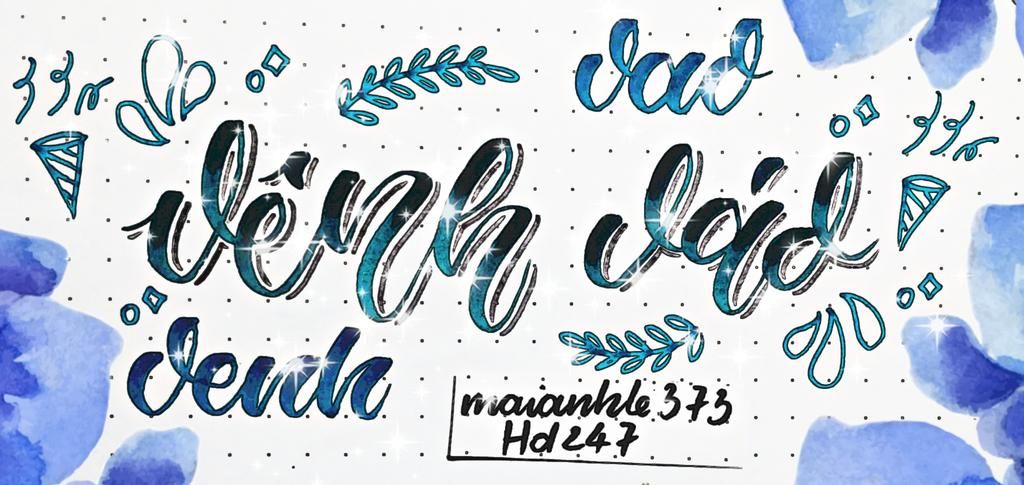 vao
vênh váo
venh
maianhle373
Hd247